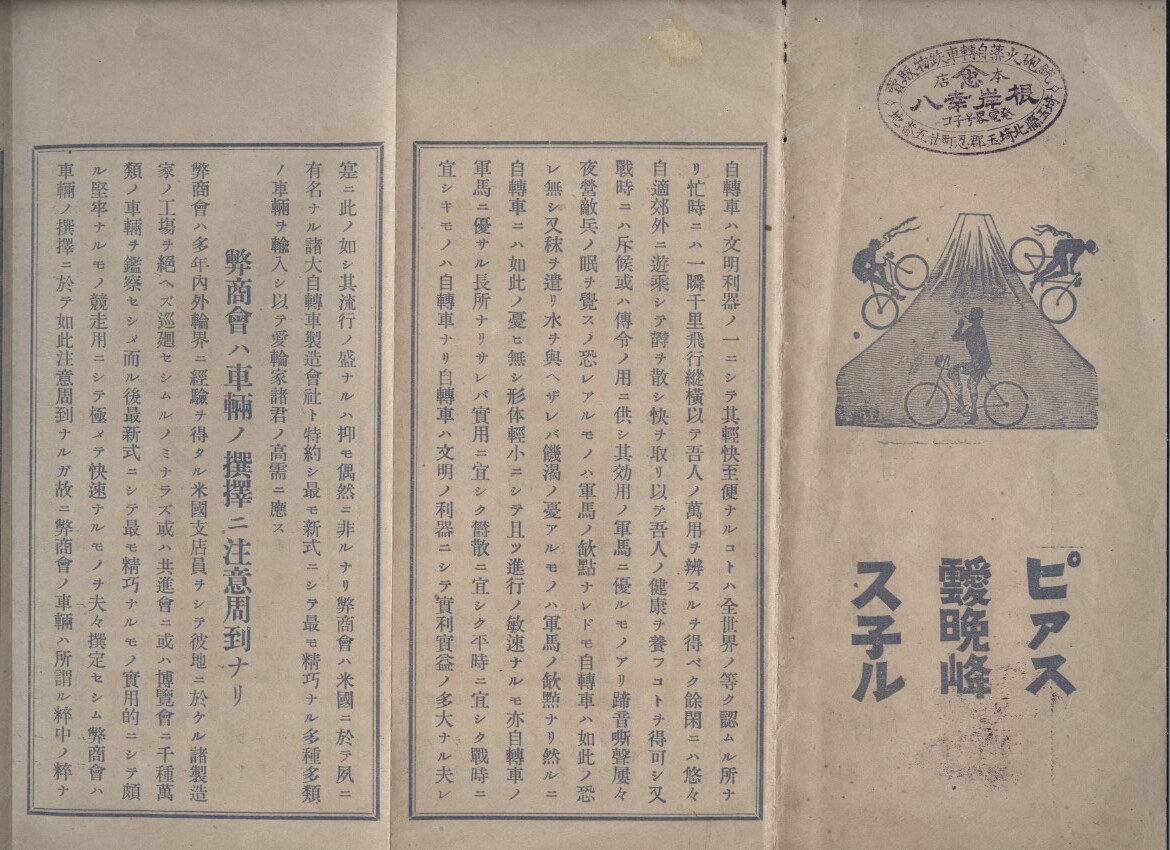 銃砲火藥自轉車鉄物販賣
本店
忠
根岸幸八
發電畧号子コ
埼玉縣北埼玉郡忍町廿五番地
ピアス
靉晩峰
ス子ル
自轉車ハ文明利器ノ一ニシテ其輕快至便ナルコトハ全世界ノ等ク認ムル所ナ
リ忙時ニハ一瞬千里飛行縱横以テ吾人ノ萬用ヲ辨スルヲ得ベク餘閑ニハ悠々
自適郊外ニ遊乘シテ欝ヲ散シ快ヲ取リ以テ吾人ノ健康ヲ養フコトヲ得可シ又
戰時ニハ斥候或ハ傳令ノ用ニ供シ其効用ノ軍馬ニ優ルモノアリ蹄音嘶聲屡々
夜營敵兵ノ眠ヲ覺スノ恐レアルモノハ軍馬ノ缺點ナレドモ自轉車ハ如此ノ恐
レ無シ又秣ヲ遣リ水ヲ與ヘザレバ饑渴ノ憂アルモノハ軍馬ノ缺㸃ナリ然ルニ
自轉車ニハ如此ノ憂ヒ無シ形体輕小ニシテ且ツ進行ノ敏速ナルモ亦自轉車ノ
軍馬ニ優サル長所ナリサレバ實用ニ宜シク欝散ニ宜シク平時ニ宜シク戰時ニ
宜シキモノハ自轉車ナリ自轉車ハ文明ノ利器ニシテ實利實益ノ多大ナル夫レ
寔ニ此ノ如シ其流行ノ盛ナルハ抑モ偶然ニ非ルナリ弊商會ハ米國ニ於テ夙ニ
有名ナル諸大自轉車製造會社ト特約シ最モ新式ニシテ最モ精巧ナル多種多類
ノ車輛ヲ輸入シ以テ愛輪家諸君ノ高需ニ應ス
弊商會ハ車輛ノ撰擇ニ注意周到ナリ
弊商會ハ多年內外輪界ニ經驗ヲ得タル米國支店員ヲシテ彼地ニ於ケル諸製造
家ノ工塲ヲ絕ヘズ巡廻セシムルノミナラズ或ハ共進會ニ或ハ博覽會ニ千種萬
類ノ車輛ヲ鑑察セシメ而ル後最新式ニシテ最モ精巧ナルモノ實用的ニシテ頗
ル堅牢ナルモノ競走用ニシテ極メテ快速ナルモノヲ夫々撰定セシム弊商會ハ
車輛ノ撰擇ニ於テ如此注意周到ナルガ故ニ弊商會ノ車輛ハ所謂ル粹中ノ粹ナ